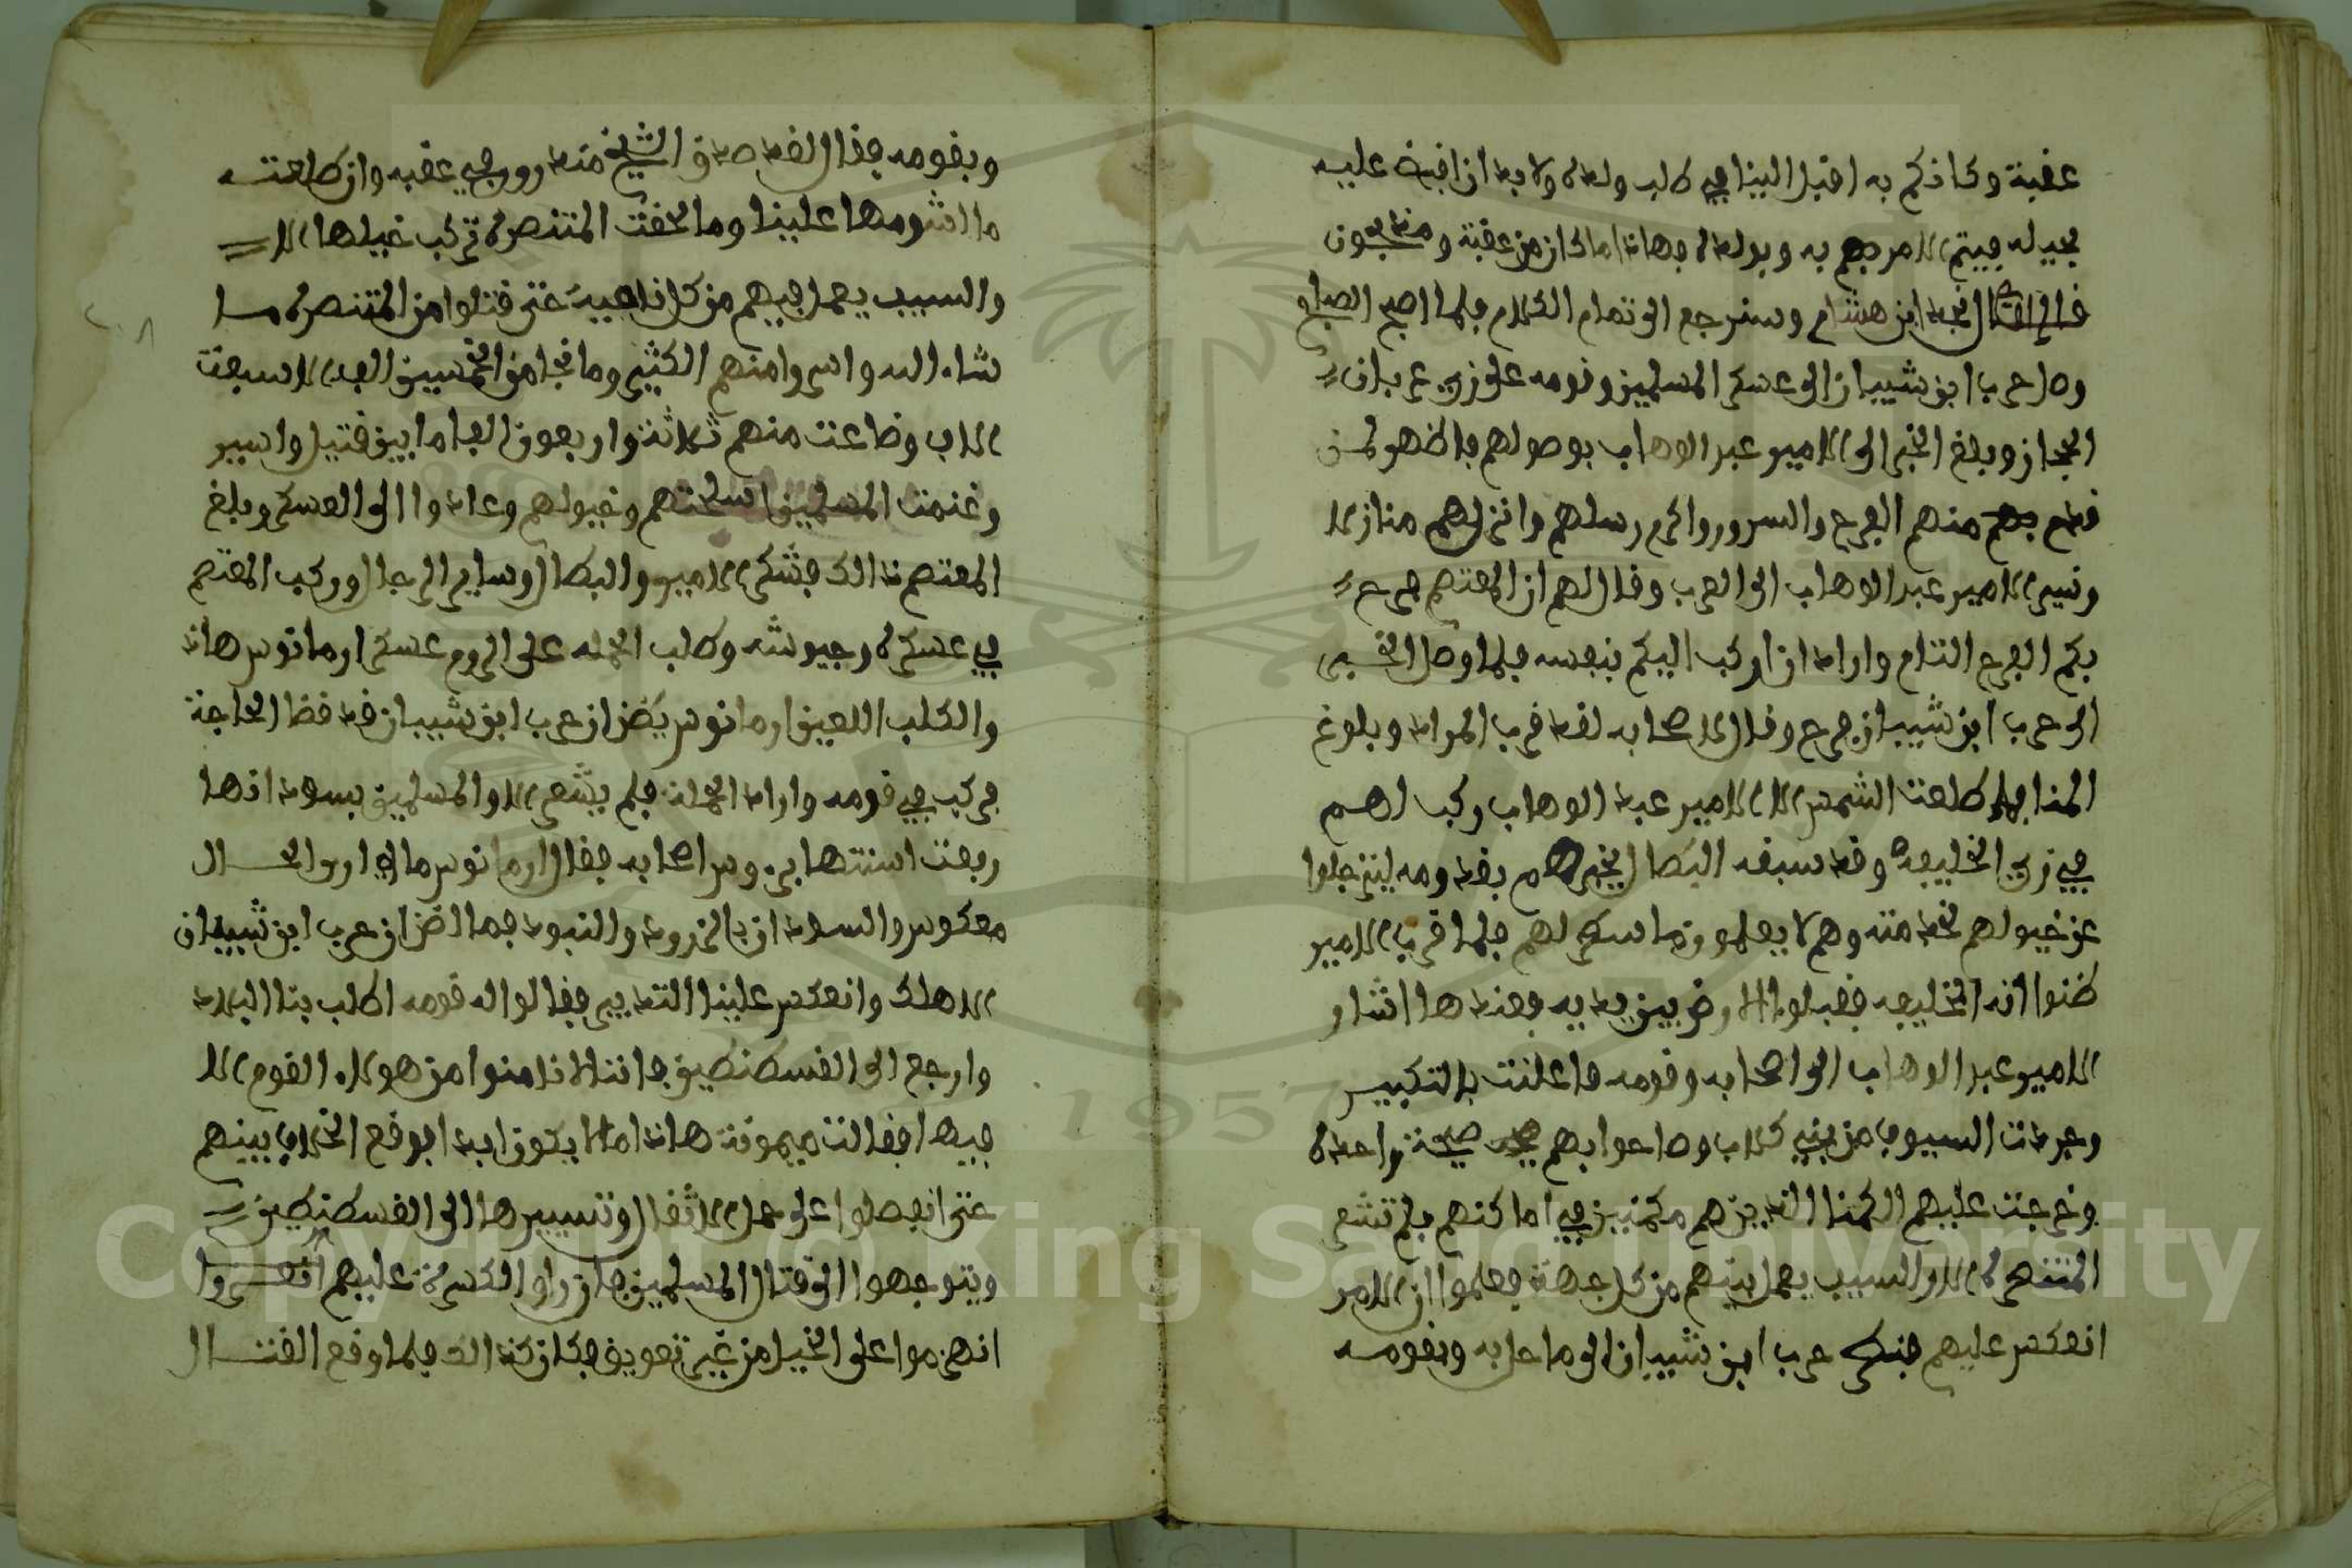 عقبة وكاذكم به اقبل الينا في طلب ولده ولا بد ان اقبض عليه
بحيله فيتم الامر به وبولده فهاذا ما كان من عقبة و
قال نجد ابن هشام وسنرجع الى تمام الكلام فلما اصبح الصباح
وصل حرب ابن شيبان الى عسكر المسلمين وقومه على زي عربان
الحجاز وبلغ الخبر الى الامير عبد الوهاب بوصولهم فاظهر لمن
قدم منهم الفرح والسرور واكرم رسلهم وانزلهم منازلا
وسير الامير عبد الوهاب الى العرب وقال لهم ان المعتصم فرح
بكم الفرح التام واراد ان اركب اليكم بنفسه فلما وصل الخبر
الى حرب ابن شيبان فرح وقال لاصحابه لقد قرب المراد وبلوغ
المنا فلما طلعت الشمس الا الامير عبد الوهاب ركب لهم
في زي الخليفة وقد سبقه البطال يخبرهم بقدومه لينزجلوا
عن خيولهم لخدمته وهم لا يعلمون ما سطر لهم فلما قرب الامير
ظنوا انه الخليفه فقبلوا الارض بين يديه فعندها اشار
الامير عبد الوهاب الى اصحابه وقومه فاعلنت بالتكبير
وجردت السيوف من بني كلاب وصاحوا بهم صيحة واحدة
وخرجت عليهم الكمنا الذين هم مكمنين في اماكنهم فلم تشعر
المتنصره الا والسيف يعمل بينهم من كل جهة فعلموا ان الامر
انعكس عليهم فنظر حرب ابن شيبان الى ما حل به وبقومه
وبقومه فقال لقد صدق الشيخ منذرون في عقبه وان طلعته
ما اشومها علينا وما لحقت المتنصره تركب خيلها الا
والسيف يعمل فيهم من كل ناحية حتى قتلوا من المتنصره ما
شاء الله واسروا منهم الكثير وما نجا من الخمسين الف الا سبعت
الاف وضاعت منهم ثلاثة واربعون الفا ما بين قتيل واسير
وغنمت المسلمين اسلحتهم وخيولهم وعادوا الى العسكر وبلغ
المعتصم ذالك فشكر الامير والبطال وساير الرجال وركب المعتصم
في عسكره وجيوشه وطلب الحمله على الروم عسكر ارمانوس هاذا
والكلب اللعين ارمانوس يظن ان حرب ابن شيبان قد قضا الحاجة
فركب في قومه واراد الحملة فلم يشعر الا والمسلمين بسواد اذها
رفعت اسنتها بروس اصحابه فقال ارمانوس مالي ارى الحال
معكوس والسواد ان بالخدود والنبود فما اظن ان حرب ابن شيبان
الا هلك وانعكس علينا التدبير فقالوا له قومه اطلب بنا البلاد
وارجع الى القسطنطين فاننا لا نامنوا من هولاء القوم الا
فيها فقالت ميمونة هاذا ما لا يكون ابدا فوقع الخلاف بينهم
حتى انفصلوا على حمل الاثقال وتسييرها الى القسطنطين
ويتوجهوا الى قتال المسلمين فان راوا الكسرة عليهم انكسروا
انهزموا على الخيل من غير تعويق فكان كذالك فلما وقع القتال
Copyright © King Saud University
1957